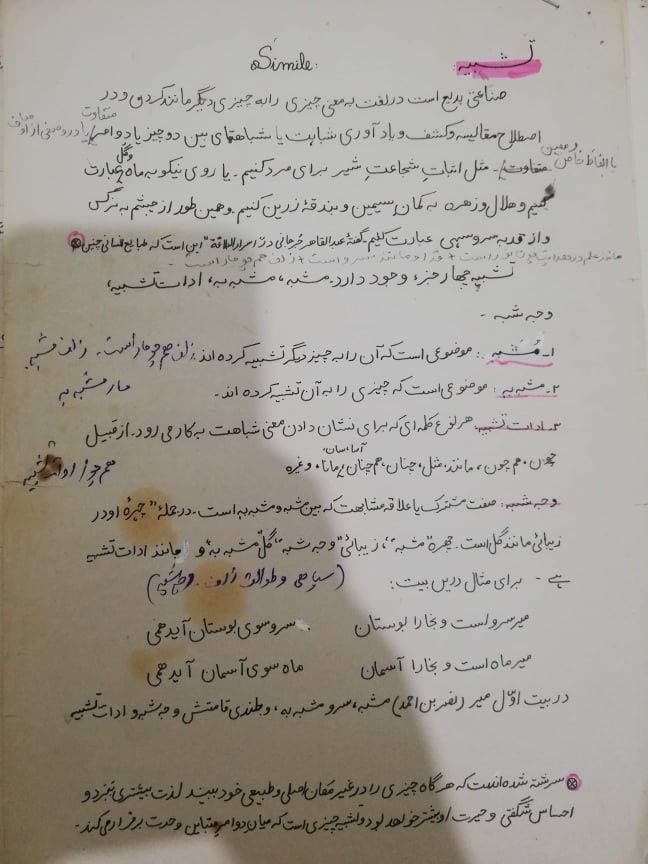 تشبیه Simile:
صناعتی بدیع است در لغت به معنی چیزی را به چیزی دیگر مانند کردن و در
اصطلاح مقایسه و کشف و یادآوری شباهت یا شباهتهای بین دو چیز یا دو امر
متفاوت
یا درو معنی از اوصاف
با الفاظ خاص و معین
متفاوت. مثل اثبات شجاعت شیر برای مرد کنیم. یا روی نیکو به ماه و گل عبارت
کنیم و هلال و زهره به کمان سیمین و بندقهٔ زرین کنیم. و همین طور از چشم به نرگس
و از قد به سرو سهی عبارت کنیم. گفتهٔ عبدالقاهر جرجانی در اسرار البلاغة "این است که طبایع انسانی چنین ⊗
مانند علم در هدایت چون نور است + قد او مانند سرو است + زلف هم چو مار است
تشبیه چهار جزء وجود دارد. مشبه، مشبه به، ادات تشبیه،
وجه شبه.
۱- مُشبه: موضوعی است که آن را به چیز دیگر تشبیه کرده اند: زلف هم چو مار است. زلف مشبه
۲- مشبه به: موضوعی است که چیزی را به آن تشبیه کرده اند. مار مشبه به
۳- ادات تشبیه: هر نوع کلمه ای که برای نشان دادن معنی شباهت به کار می رود. از قبیل
چون، هم چون، مانند، مثل، چنان، هم چنان، مانا، آسا، سان، وغیره
هم چو / ادات تشبیه
وجه شبه: صفت مشترک یا علاقه مشابهت که بین مشبه و مشبه به است. در جملهٔ "چهرهٔ او در
زیبائی مانند گل است. چهره "مشبه"، زیبائی "وجه شبه"، گل مشبه به و مانند ادات تشبیه
است - برای مثال درین بیت: (سیاهی و طوالت زلف. وجه شبه)
میر سرو است و بخارا بوستان سرو سوی بوستان آید همی
میر ماه است و بخارا آسمان ماه سوی آسمان آید همی
در بیت اوّل میر (نصر بن احمد) مشبه، سرو مشبه به، و بلندی قامتش وجه شبه و ادات تشبیه
⊗ سرشته شده است که هر گاه چیزی را در غیر مکان اصلی و طبیعی خود ببیند لذت بیشتری ببرد و
احساس شگفتی و حیرت او بیشتر خواهد بود و تشبیه چیزی است که میان دو امر متباین وحدت برقرار می کند.